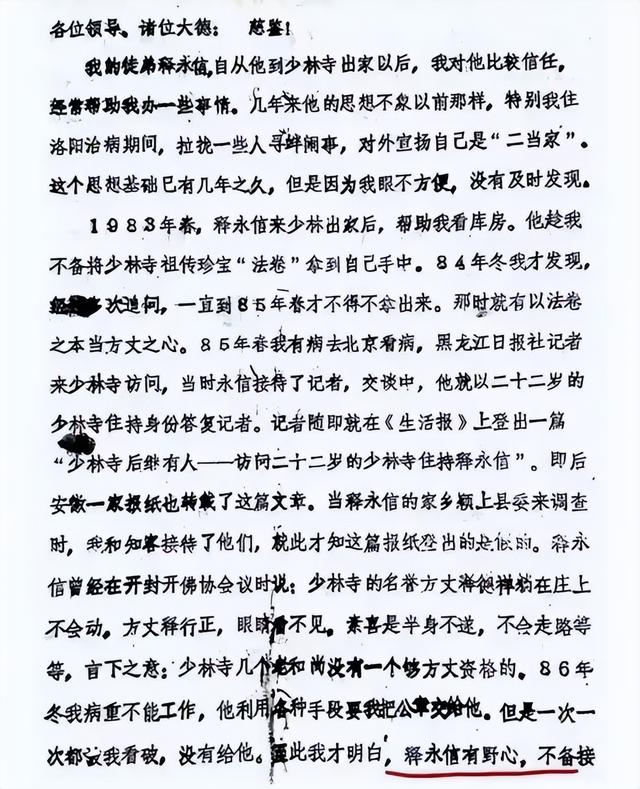 各位领导。诸位大德： 慈鉴！
我的徒弟释永信，自从他到少林寺出家以后，我对他比较信任，
经常帮助我办一些事情。几年来他的思想不象以前那样，特别我住
洛阳治病期间，拉拢一些人寻衅闹事，对外宣扬自己是“二当家”。
这个思想基础已有几年之久，但是因为我眼不方便，没有及时发现。
1983年春，释永信来少林出家后，帮助我看库房。他趁我
不备将少林寺祖传珍宝“法卷”拿到自己手中。84年冬我才发现，
次追问，一直到85年春才不得不拿出来。那时就有以法卷
之本当方丈之心。85年春我有病去北京看病，黑龙江日报社记者
来少林寺访问，当时永信接待了记者，交谈中，他就以二十二岁的
少林寺住持身份答复记者。记者随即就在《生活报》上登出一篇
“少林寺后继有人——访问二十二岁的少林寺住持释永信”。即后
安徽一家报纸也转载了这篇文章。当释永信的家乡颍上县委来调查
时，我和知客接待了他们，就此才知这篇报纸登出的是假的。释永
信曾经在开封开佛协会议时说：少林寺的名誉方丈释德禅躺在庄上
不会动。方丈释行正，眼睛看不见。素喜是半身不遂，不会走路等
等，言下之意：少林寺几个老和尚没有一个够方丈资格的。86年
冬我病重不能工作，他利用各种手段要我把公章交给他。但是一次一
次都被我看破，没有给他。至此我才明白，释永信有野心，不备接